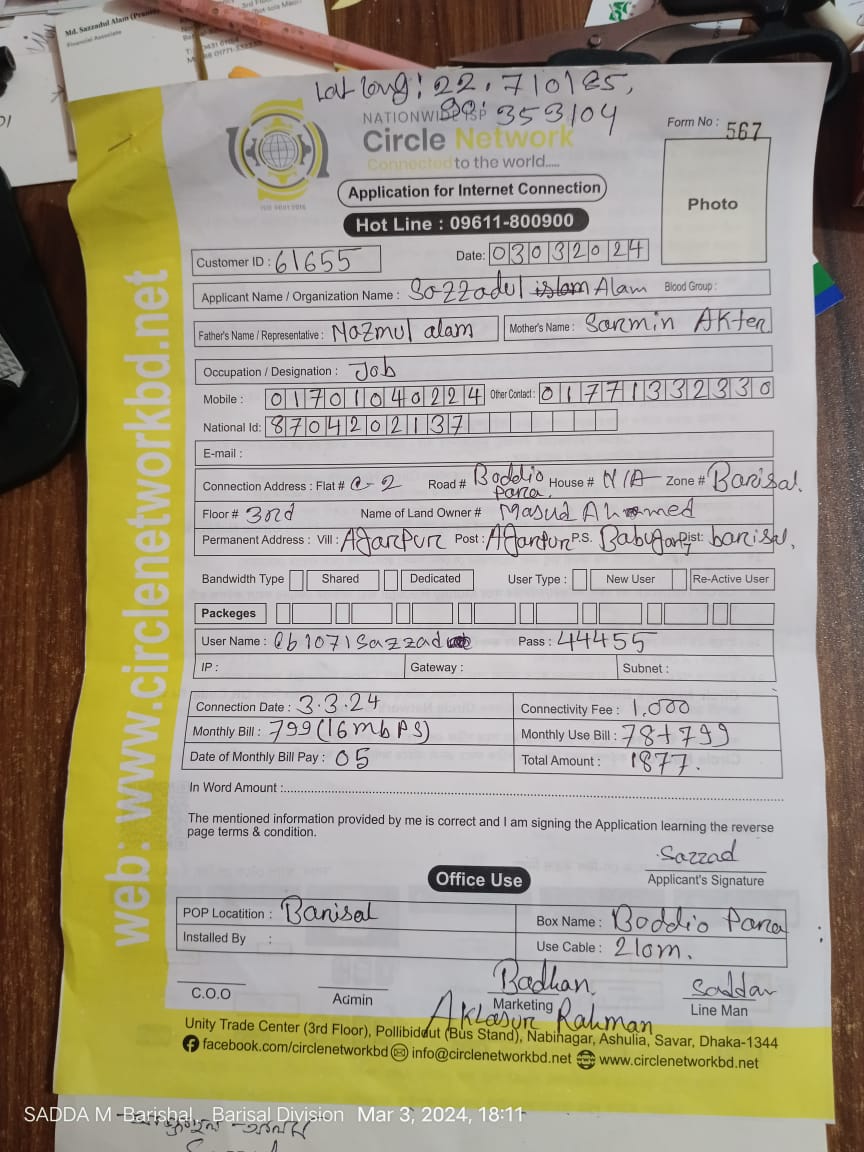 Md. Sazzadul Alam
Financial Associate
Lat long: 22.710185,
90.353104
NATIONWIDE ISP
Circle Network
Connected to the world.....
ISO 9001:2015
Form No : 567
Photo
Application for Internet Connection
Hot Line : 09611-800900
Customer ID : 61655 Date: 03032024
Applicant Name / Organization Name : Sazzadul islam Alam Blood Group :
Father's Name / Representative : Nazmul alam Mother's Name : Sarmin Akter
Occupation / Designation : Job
Mobile : 01701040224 Other Contact : 01771332330
National Id: 8704202137
E-mail :
Connection Address : Flat # C-2 Road # Boddio para House # N/A Zone # Barisal.
Floor # 3rd Name of Land Owner # Masud Ahamed
Permanent Address : Vill : Agarpur Post : Agarpur P.S. Babuganj Dist: barisal,
Bandwidth Type Shared Dedicated User Type : New User Re-Active User
Packeges
User Name : cb1071sazzad Pass : 44455
IP : Gateway : Subnet :
Connection Date : 3.3.24 Connectivity Fee : 1,000
Monthly Bill : 799 (16mbPS) Monthly Use Bill : 78+799
Date of Monthly Bill Pay : 05 Total Amount : 1877.
In Word Amount :
The mentioned information provided by me is correct and I am signing the Application learning the reverse
page terms & condition.
Sazzad
Applicant's Signature
Office Use
POP Locatition : Barisal Box Name : Boddio Para
Installed By : Use Cable : 210m.
Badhan Saddar
C.O.O Admin Marketing Line Man
Aklasur Rahman
Unity Trade Center (3rd Floor), Pollibiddut (Bus Stand), Nabinagar, Ashulia, Savar, Dhaka-1344
facebook.com/circlenetworkbd info@circlenetworkbd.net www.circlenetworkbd.net
web: www.circlenetworkbd.net
SADDA M Barishal, Barisal Division Mar 3, 2024, 18:11